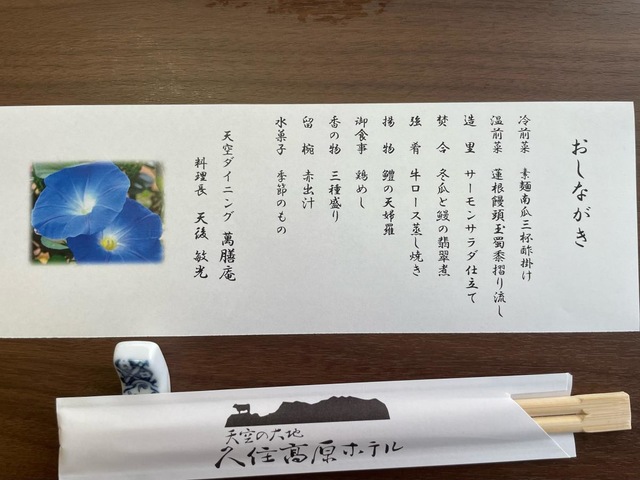 おしながき
冷前菜　素麺南瓜三杯酢掛け
温前菜　蓮根饅頭玉蜀黍摺り流し
造里　サーモンサラダ仕立て
焚合　冬瓜と鰻の翡翠煮
強肴　牛ロース蒸し焼き
揚物　鱧の天婦羅
御食事　鶏めし
香の物　三種盛り
留椀　赤出汁
水菓子　季節のもの
天空ダイニング　萬膳庵
料理長　天後　敏光
天空の大地
久住高原ホテル